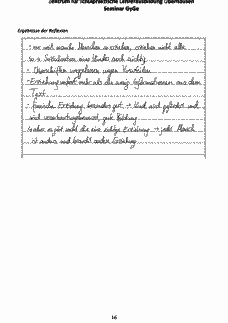 Zentrum für schulpraktische Lehrerausbildung Oberhausen
Seminar GyGe
Ergebnisse der Reflexion
- nur weil manche Menschen so erziehen, erziehen nicht alle
so → Individuum eine Stunde auch wichtig
- Überschriften vorgelesen wegen Vorurteilen
- Erziehung umfasst mehr als die wenig Informationen aus dem
Text
- finnische Erziehung besonders gut → Kind wird gefördert und
wird verantwortungsbewusst, gute Bildung
→ aber es gibt nicht die eine richtige Erziehung → jeder Mensch
ist anders und braucht andere Erziehung
16